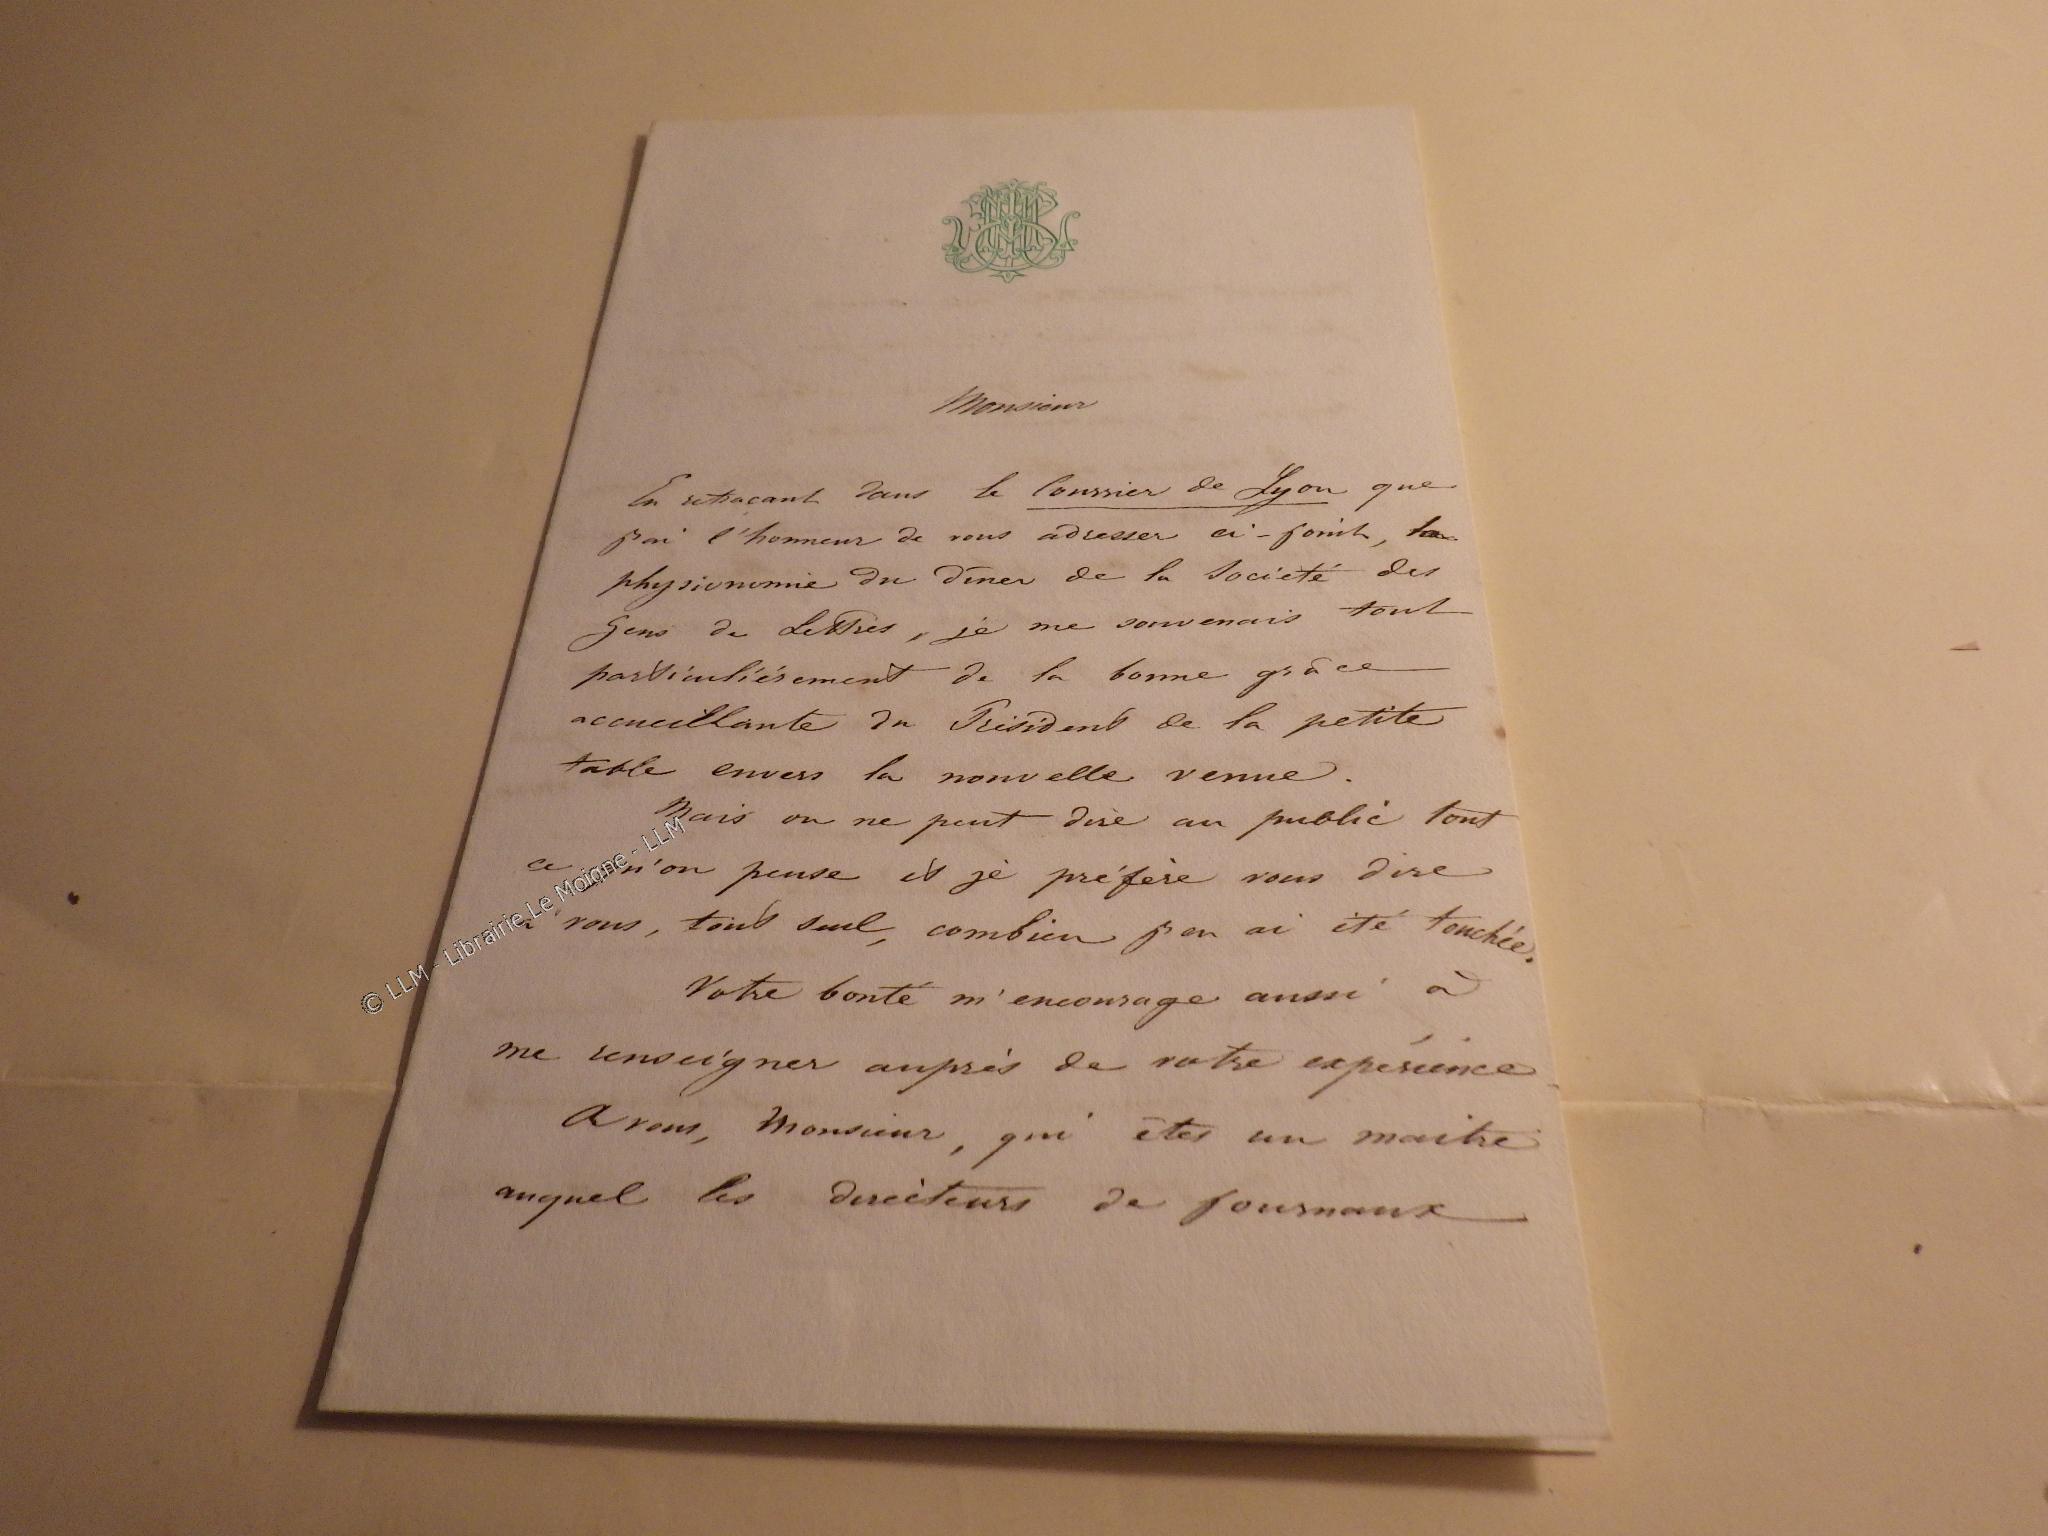 Monsieur
En retraçant dans le Courrier de Lyon que
j'ai l'honneur de vous adresser ci-joint, la
physionomie du dîner de la Société des
Gens de Lettres, je me souvenais tout
particulièrement de la bonne grâce
accueillante du Président de la petite
table envers la nouvelle venue.
Mais on ne peut dire au public tout
ce qu'on pense et je préfère vous dire
à vous, tout seul, combien j'en ai été touchée.
Votre bonté m'encourage aussi à
me renseigner auprès de votre expérience
A vous, Monsieur, qui êtes un maitre
auquel les directeurs de journaux
© LLM - Librairie Le Moigne - LLM